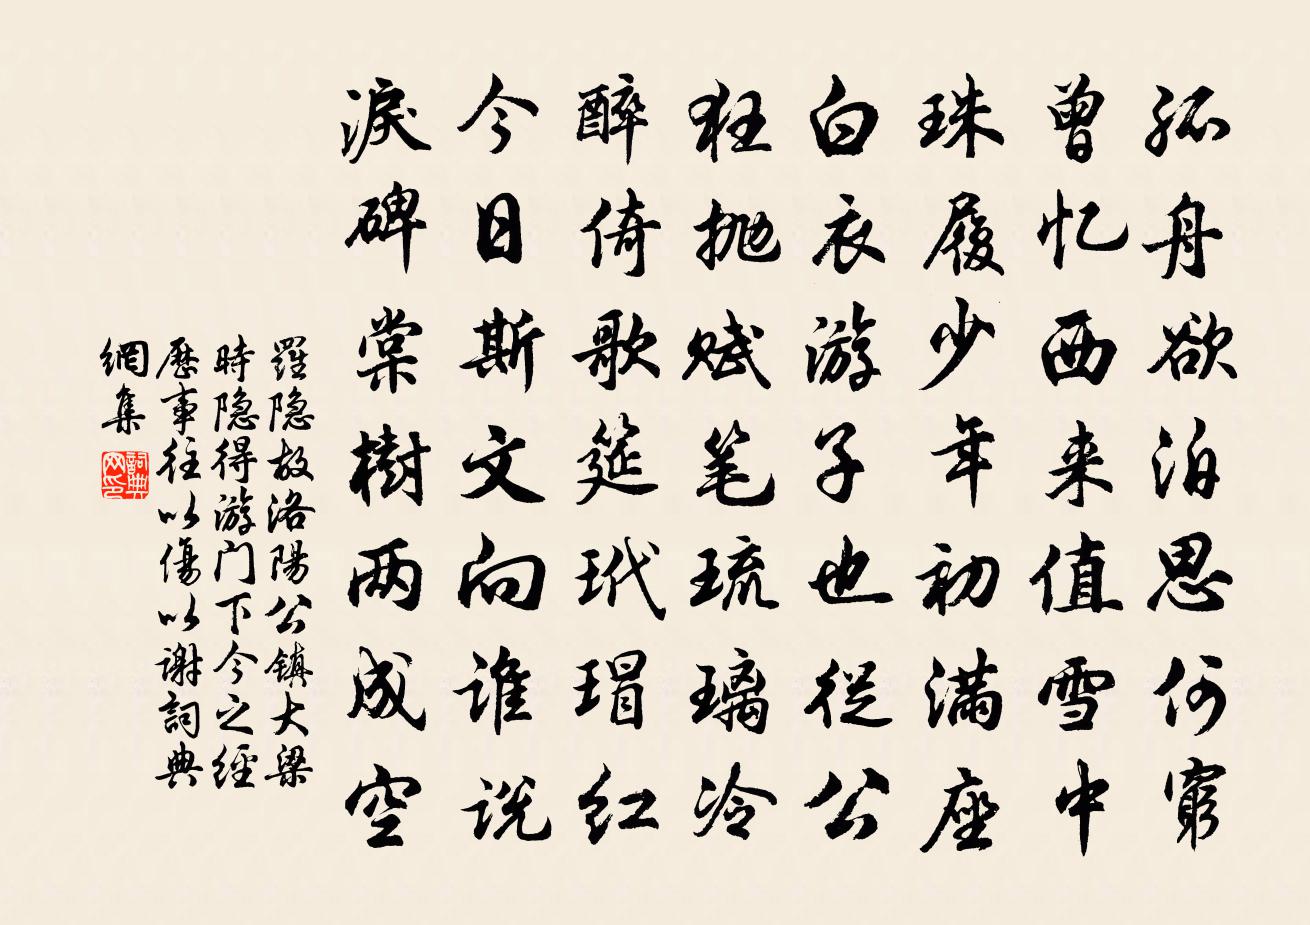 孤舟欲泊思何窮
曾忆西来值雪中
珠履少年初满座
白衣游子也從公
狂抛赋笔琉璃冷
醉倚歌筵玳瑁红
今日斯文向谁説
淚碑棠樹两成空
羅隐故洛陽公镇大梁
時隐得游门下今之經
歷事往以傷以谢詞典
網集
詞典
网印